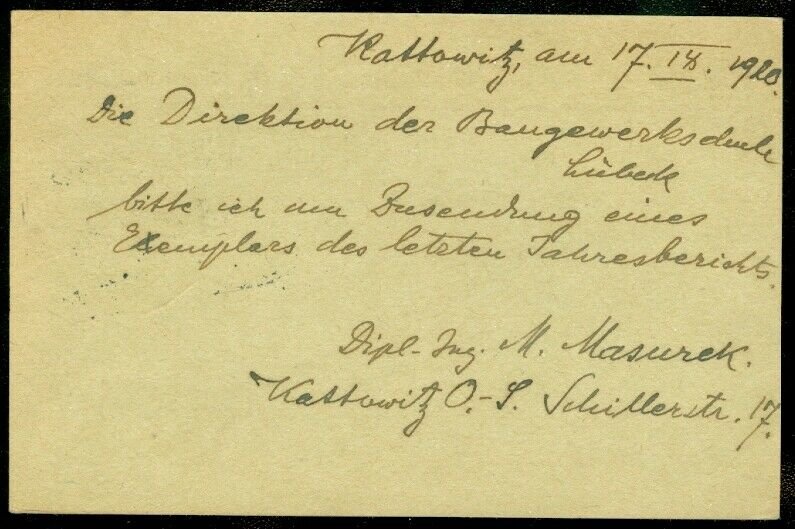 Kattowitz, am 17. IX. 1920.
Die Direktion der Baugewerkschule
Lübeck
bitte ich um Zusendung eines
Exemplars des letzten Jahresberichts.
Dipl-Ing. M. Masurek.
Kattowitz O.-S. Schillerstr. 17.